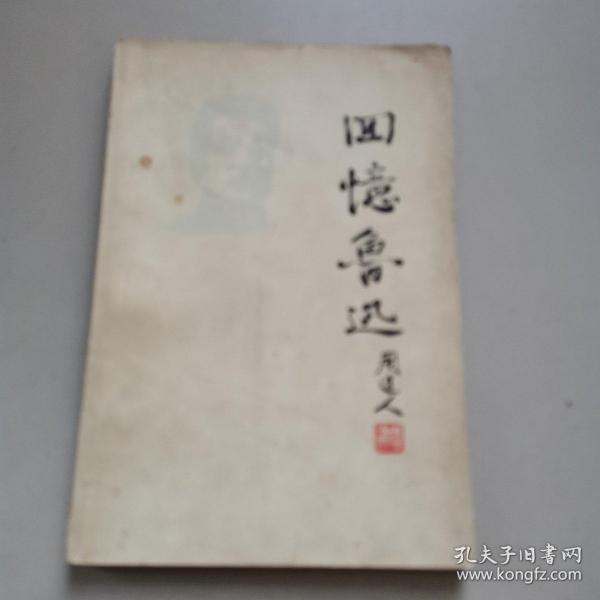 回憶魯迅
周建人
孔夫子旧書网
www.kongfz.com